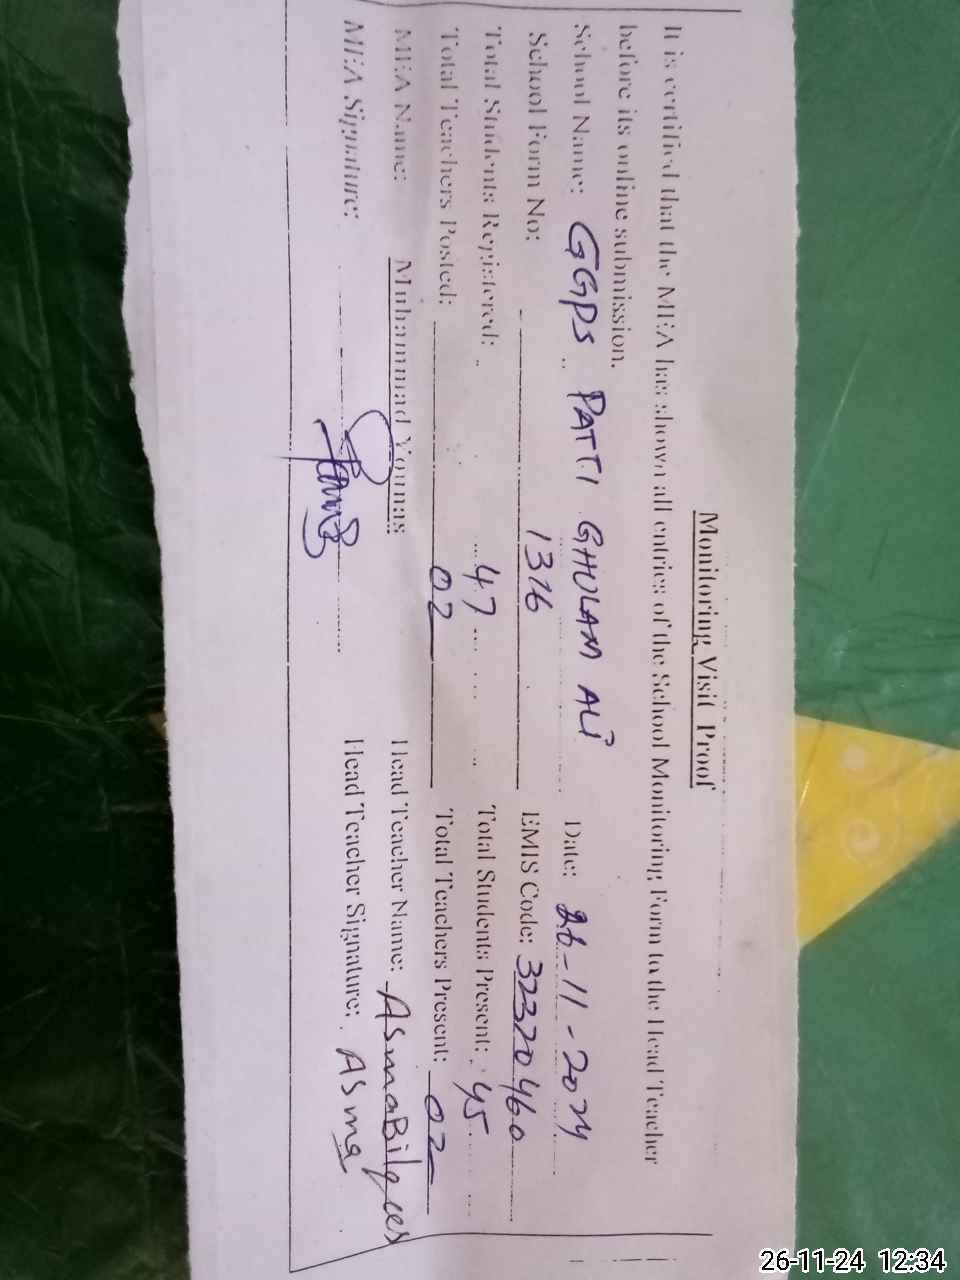 Monitoring Visit Proof
It is certified that the MEA has shown all entries of the School Monitoring Form to the Head Teacher
before its online submission.
School Name: GGPS PATTI GHULAM ALI Date: 26-11-2024
School Form No: 1316 EMIS Code: 32320460
Total Students Registered: 47 Total Students Present: 45
Total Teachers Posted: 02 Total Teachers Present: 02
MEA Name: Muhammad Younas Head Teacher Name: Asma Bilqees
MEA Signature: Head Teacher Signature: Asma
26-11-24 12:34